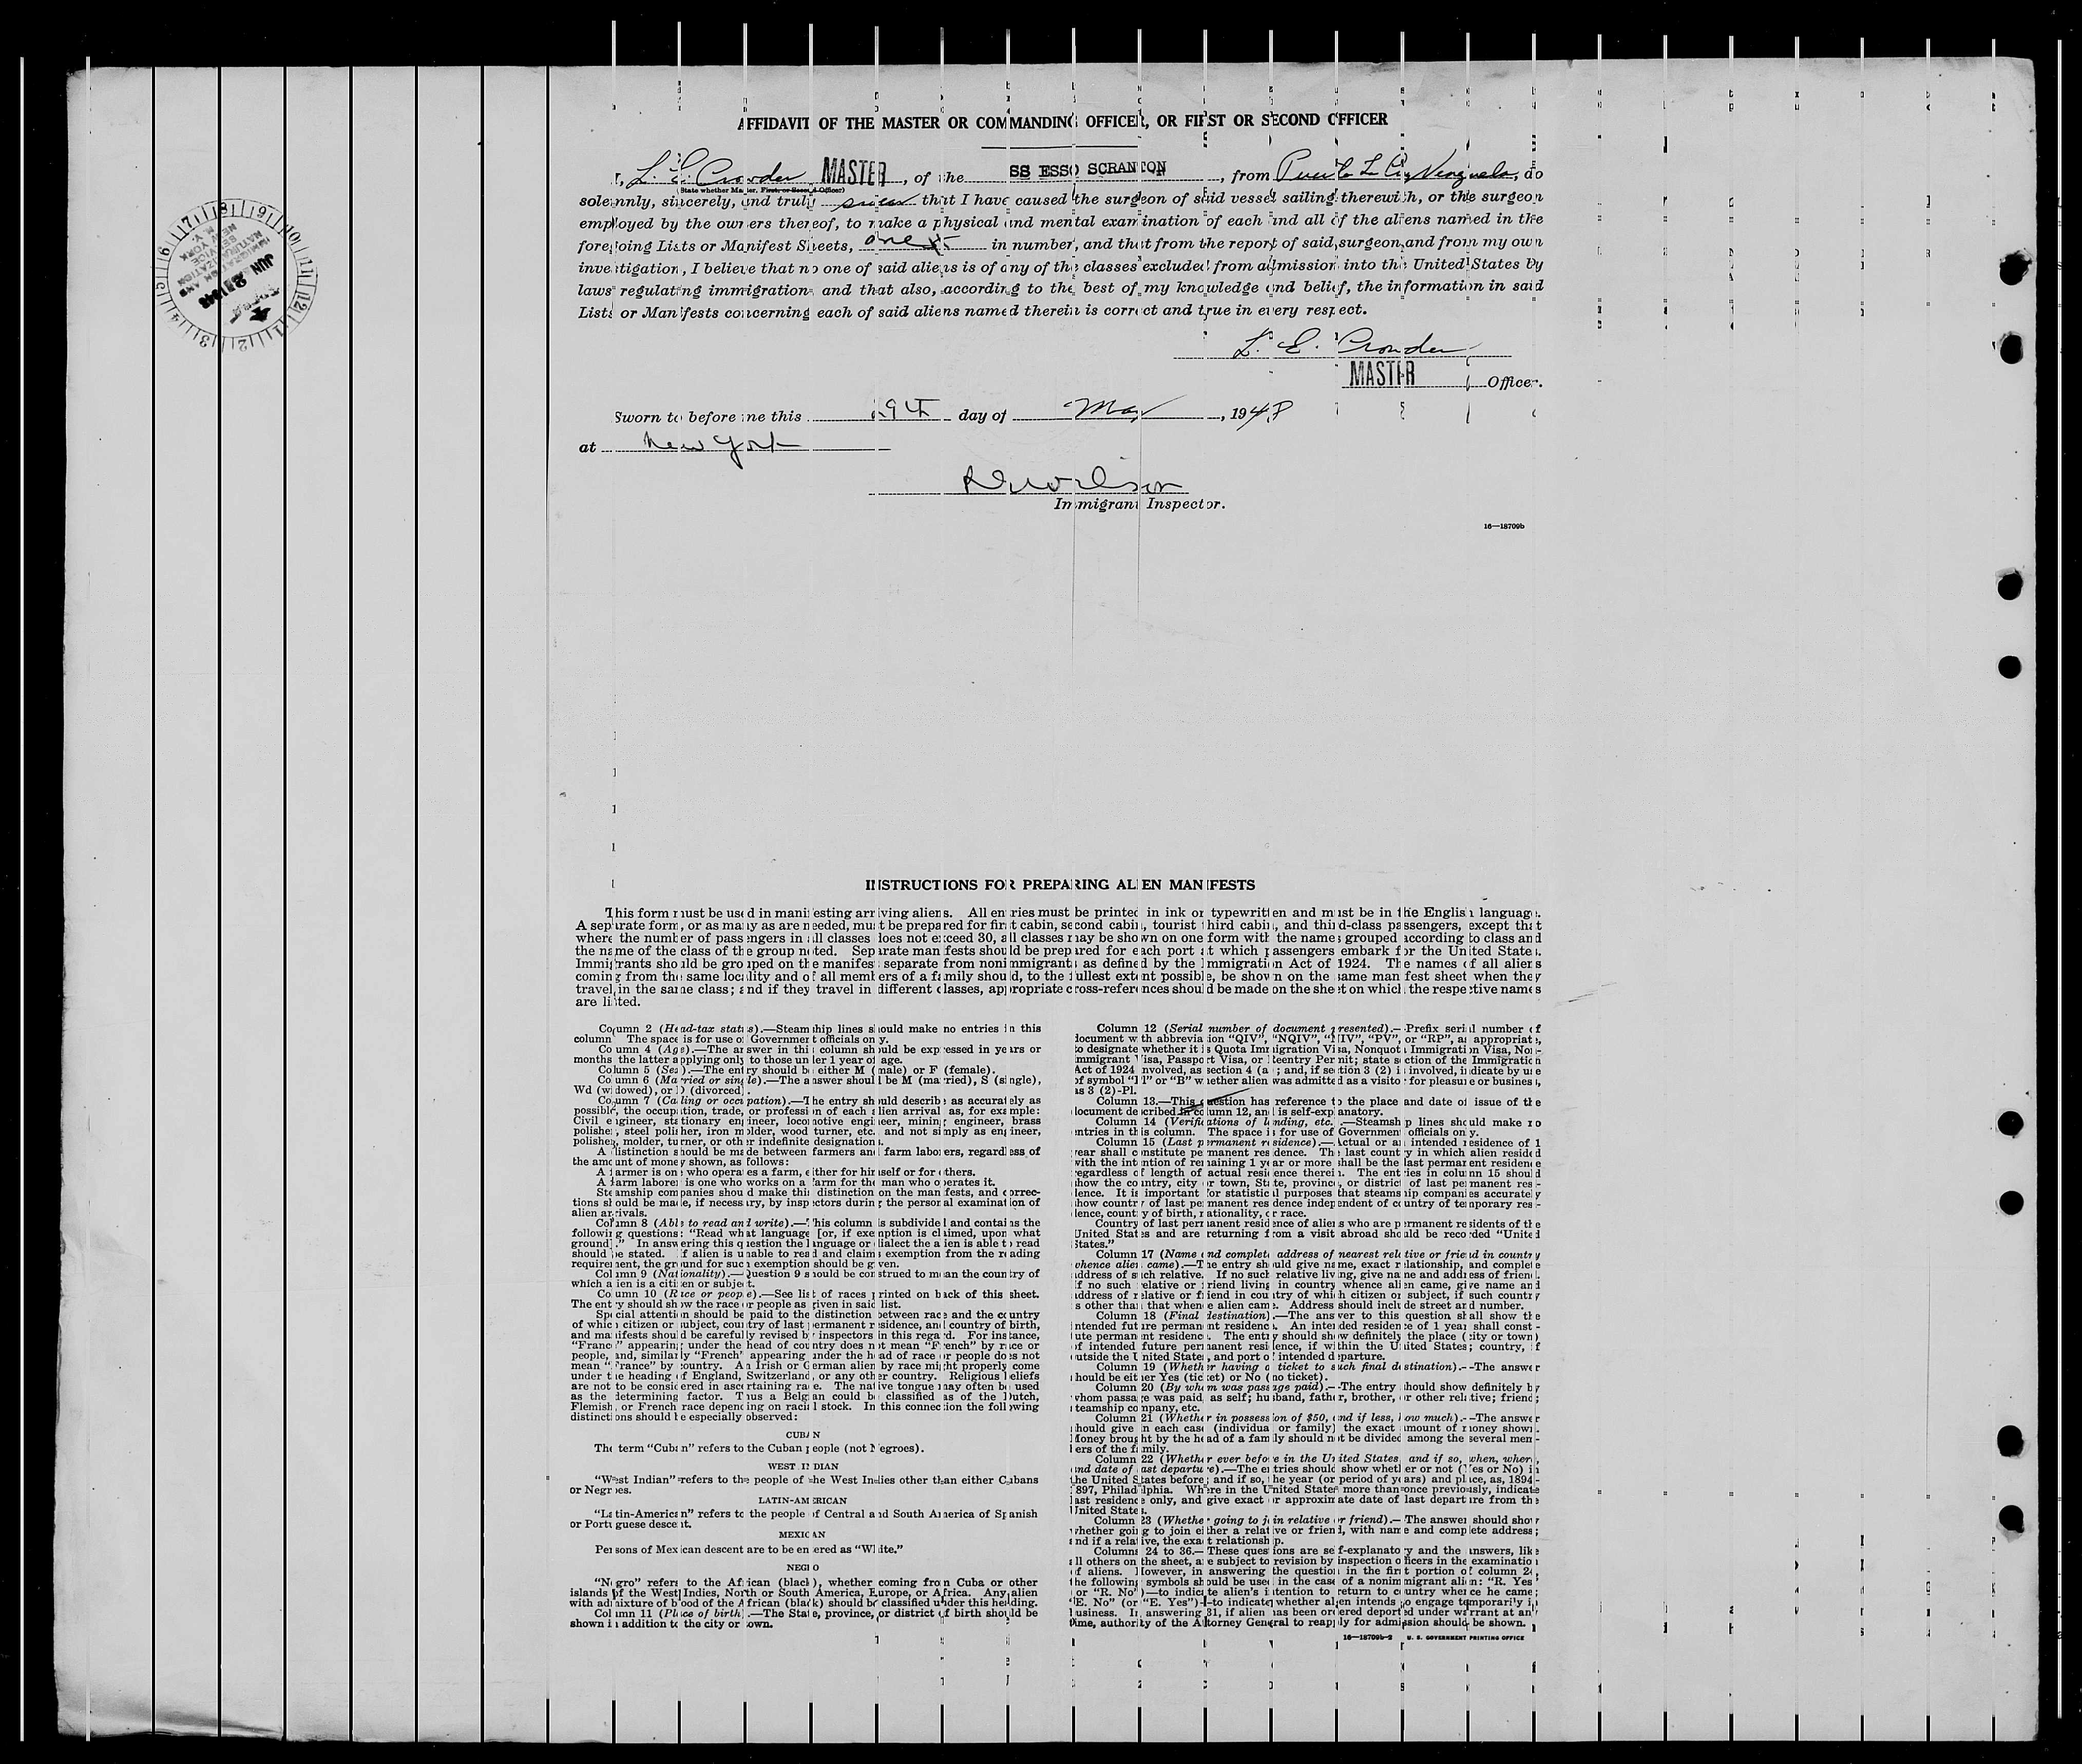 AFFIDAVIT OF THE MASTER OR COMMANDING OFFICER, OR FIRST OR SECOND OFFICER
I, L. E. Crowder MASTER, of the SS ESSO SCRANTON, from Puerto La Cruz Venezuela, do
(State whether Master, First or Second Officer)
solemnly, sincerely, and truly swear that I have caused the surgeon of said vessel sailing therewith, or the surgeon
employed by the owners thereof, to make a physical and mental examination of each and all of the aliens named in the
foregoing Lists or Manifest Sheets, one in number, and that from the report of said surgeon and from my own
investigation, I believe that no one of said aliens is of any of the classes excluded from admission into the United States by
laws regulating immigration, and that also, according to the best of my knowledge and belief, the information in said
Lists or Manifests concerning each of said aliens named therein is correct and true in every respect.
L. E. Crowder
MASTER Officer.
Sworn to before me this day of May, 1948
at New York
Immigrant Inspector.
16—18709b
IMMIGRATION AND NATURALIZATION SERVICE NEW YORK N. Y.
JUN 2 1948
INSTRUCTIONS FOR PREPARING ALIEN MANIFESTS
This form must be used in manifesting arriving aliens. All entries must be printed in ink or typewritten and must be in the English language.
A separate form, or as many as are needed, must be prepared for first cabin, second cabin, tourist third cabin, and third-class passengers, except that
where the number of passengers in all classes does not exceed 30, all classes may be shown on one form with the names grouped according to class and
the name of the class of the group noted. Separate manifests should be prepared for each port at which passengers embark for the United States.
Immigrants should be grouped on the manifest separate from nonimmigrants as defined by the Immigration Act of 1924. The names of all aliens
coming from the same locality and of all members of a family should, to the fullest extent possible, be shown on the same manifest sheet when they
travel in the same class; and if they travel in different classes, appropriate cross-references should be made on the sheet on which the respective names
are listed.
Column 2 (Head-tax status).—Steamship lines should make no entries in this
column. The space is for use of Government officials only.
Column 4 (Age).—The answer in this column should be expressed in years or
months, the latter applying only to those under 1 year of age.
Column 5 (Sex).—The entry should be either M (male) or F (female).
Column 6 (Married or single).—The answer should be M (married), S (single),
Wd (widowed), or D (divorced).
Column 7 (Calling or occupation).—The entry should describe as accurately as
possible, the occupation, trade, or profession of each alien arrival as, for example:
Civil engineer, stationary engineer, locomotive engineer, mining engineer, brass
polisher, steel polisher, iron molder, wood turner, etc. and not simply as engineer,
polisher, molder, turner, or other indefinite designations.
A distinction should be made between farmers and farm laborers, regardless of
the amount of money shown, as follows:
A farmer is one who operates a farm, either for himself or for others.
A farm laborer is one who works on a farm for the man who operates it.
Steamship companies should make this distinction on the manifests, and correc-
tions should be made, if necessary, by inspectors during the personal examination of
alien arrivals.
Column 8 (Able to read and write).—This column is subdivided and contains the
following questions: "Read what language [or, if exemption is claimed, upon what
ground]." In answering this question the language or dialect the alien is able to read
should be stated. If alien is unable to read and claims exemption from the reading
requirement, the ground for such exemption should be given.
Column 9 (Nationality).—Question 9 should be construed to mean the country of
which alien is a citizen or subject.
Column 10 (Race or people).—See list of races printed on back of this sheet.
The entry should show the race or people as given in said list.
Special attention should be paid to the distinction between race and the country
of which citizen or subject, country of last permanent residence, and country of birth,
and manifests should be carefully revised by inspectors in this regard. For instance,
"France" appearing under the head of country does not mean "French" by race or
people, and, similarly "French" appearing under the head of race or people does not
mean "France" by country. An Irish or German alien by race might properly come
under the heading of England, Switzerland, or any other country. Religious beliefs
are not to be considered in ascertaining race. The native tongue may often be used
as the determining factor. Thus a Belgian could be classified as of the Dutch,
Flemish, or French race depending on racial stock. In this connection the following
distinctions should be especially observed:
CUBAN
The term "Cuban" refers to the Cuban people (not Negroes).
WEST INDIAN
"West Indian" refers to the people of the West Indies other than either Cubans
or Negroes.
LATIN-AMERICAN
"Latin-American" refers to the people of Central and South America of Spanish
or Portuguese descent.
MEXICAN
Persons of Mexican descent are to be entered as "White."
NEGRO
"Negro" refers to the African (black), whether coming from Cuba or other
islands of the West Indies, North or South America, Europe, or Africa. Any alien
with admixture of blood of the African (black) should be classified under this heading.
Column 11 (Place of birth).—The State, province, or district of birth should be
shown in addition to the city or town.
Column 12 (Serial number of document presented).—Prefix serial number of
document with abbreviation "QIV", "NQIV", "NIV", "PV", or "RP", as appropriate,
to designate whether it is Quota Immigration Visa, Nonquota Immigration Visa, Non-
immigrant Visa, Passport Visa, or Reentry Permit; state section of the Immigration
Act of 1924 involved, as section 4 (a); and, if section 3 (2) is involved, indicate by use
of symbol "Pl" or "B" whether alien was admitted as a visitor for pleasure or business,
as 3 (2)-Pl.
Column 13.—This question has reference to the place and date of issue of the
document described in column 12, and is self-explanatory.
Column 14 (Verifications of landing, etc.).—Steamship lines should make no
entries in this column. The space is for use of Government officials only.
Column 15 (Last permanent residence).—Actual or an intended residence of 1
year shall constitute permanent residence. The last country in which alien resided
with the intention of remaining 1 year or more shall be the last permanent residence
regardless of length of actual residence therein. The entries in column 15 should
show the country, city or town, State, province, or district of last permanent resi-
dence. It is important for statistical purposes that steamship companies accurately
show country of last permanent residence independent of country of temporary resi-
dence, country of birth, nationality, or race.
Country of last permanent residence of aliens who are permanent residents of the
United States and are returning from a visit abroad should be recorded "United
States."
Column 17 (Name and complete address of nearest relative or friend in country
whence alien came).—The entry should give name, exact relationship, and complete
address of such relative. If no such relative living, give name and address of friend.
If no such relative or friend living in country whence alien came, give name and
address of relative or friend in country of which citizen or subject, if such country
is other than that whence alien came. Address should include street and number.
Column 18 (Final destination).—The answer to this question shall show the
intended future permanent residence. An intended residence of 1 year shall consti-
tute permanent residence. The entry should show definitely the place (city or town)
of intended future permanent residence, if within the United States; country, if
outside the United States, and port of intended departure.
Column 19 (Whether having a ticket to such final destination).—The answer
should be either Yes (ticket) or No (no ticket).
Column 20 (By whom was passage paid).—The entry should show definitely by
whom passage was paid, as self; husband, father, brother, or other relative; friend;
steamship company, etc.
Column 21 (Whether in possession of $50, and if less, how much).—The answer
should give in each case (individual or family) the exact amount of money shown.
Money brought by the head of a family should not be divided among the several mem-
bers of the family.
Column 22 (Whether ever before in the United States, and if so, when, where,
and date of last departure).—The entries should show whether or not (Yes or No) in
the United States before; and if so, the year (or period of years) and place, as, 1894-
1897, Philadelphia. Where in the United States more than once previously, indicate
last residence only, and give exact or approximate date of last departure from the
United States.
Column 23 (Whether going to join relative or friend).—The answer should show
whether going to join either a relative or friend, with name and complete address;
and if a relative, the exact relationship.
Columns 24 to 36.—These questions are self-explanatory and the answers, like
all others on the sheet, are subject to revision by inspection officers in the examination
of aliens. However, in answering the question in the first portion of column 24,
the following symbols should be used in the case of a nonimmigrant alien: "R. Yes"
(or "R. No")—to indicate alien's intention to return to country whence he came;
"E. No" (or "E. Yes")—to indicate whether alien intends to engage temporarily in
business. In answering 31, if alien has been ordered deported under warrant at any
time, authority of the Attorney General to reapply for admission should be shown.
16—18709b-2 U. S. GOVERNMENT PRINTING OFFICE